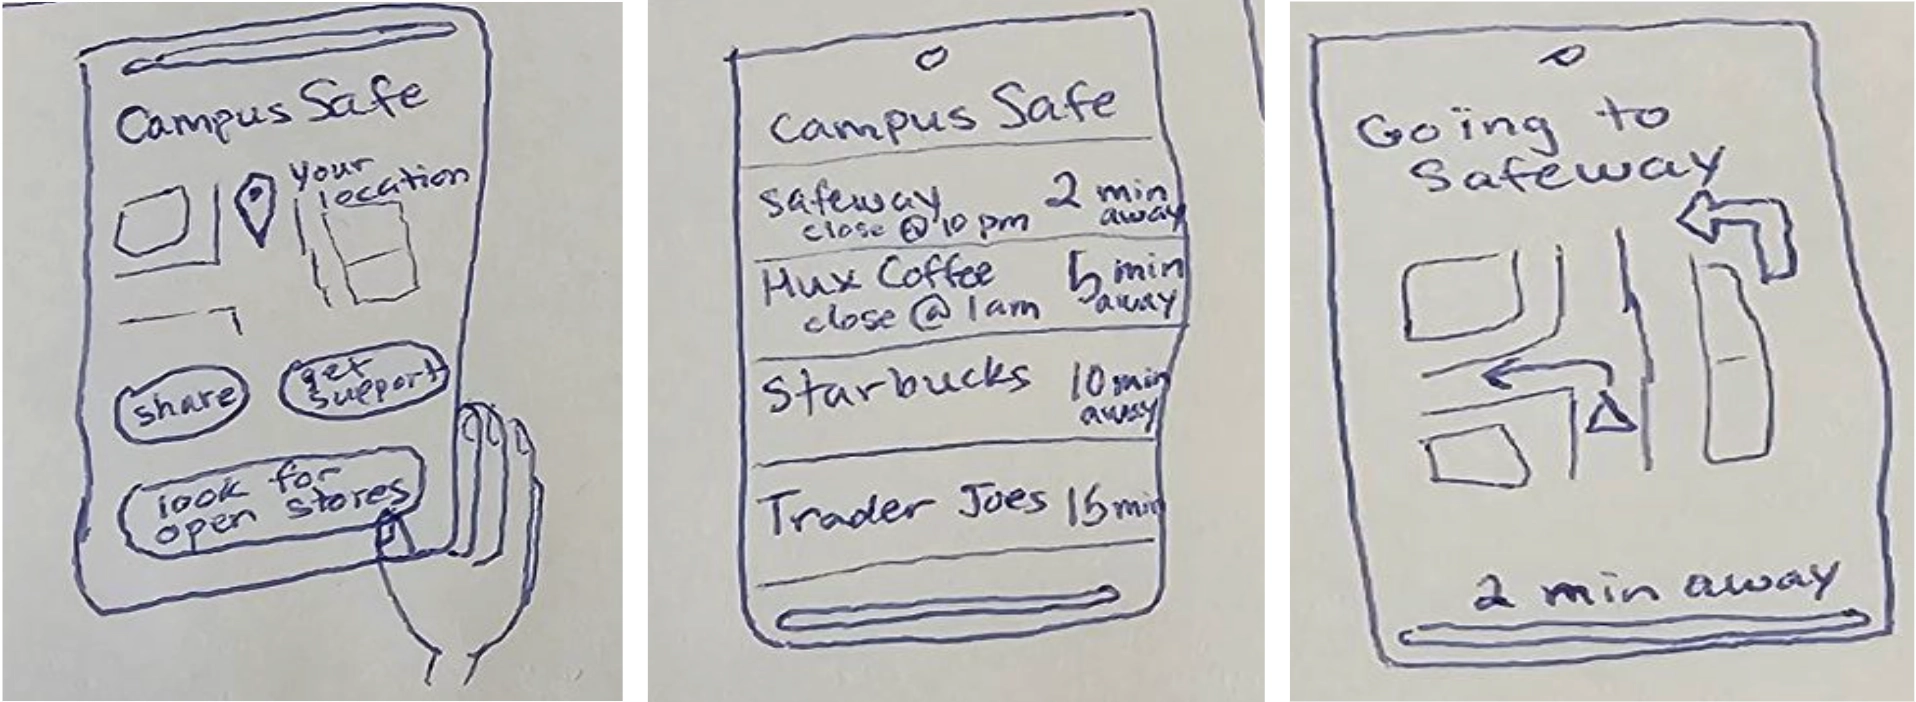 Campus Safe
your
location
share
get
support
look for
open stores
Campus Safe
Safeway 2 min
close @ 10 pm away
Mux Coffee 5 min
close @ 1am away
Starbucks 10 min
away
Trader Joes 15 min
Going to
Safeway
2 min away